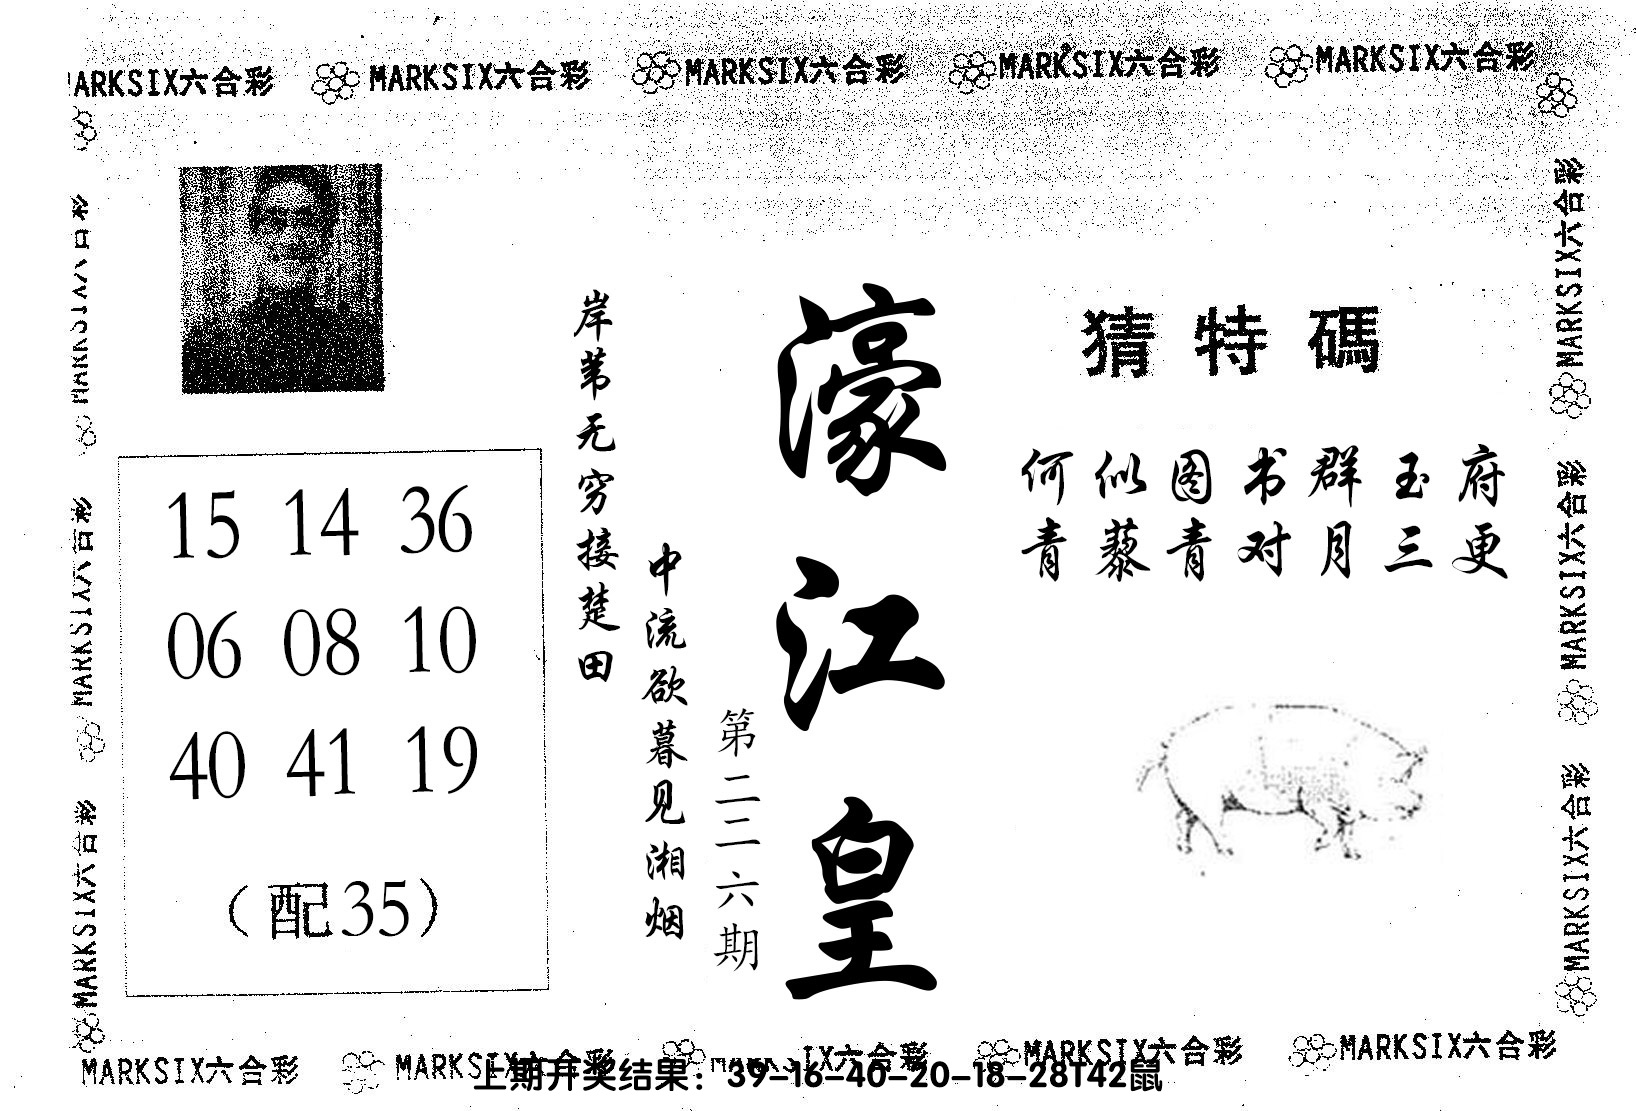 MARKSIX六合彩 MARKSIX六合彩 MARKSIX六合彩 MARKSIX六合彩 MARKSIX六合彩
MARKSIX六合彩
MARKSIX六合彩
MARKSIX六合彩
猜特碼
何似图书群玉府
青藜青对月三更
濠江皇
第二二六期
中流欲暮见湘烟
岸苇无穷接楚田
15 14 36
06 08 10
40 41 19
（配35）
MARKSIX六合彩
MARKSIX六合彩
MARKSIX六合彩
MARKSIX六合彩 MARKSIX六合彩 MARKSIX六合彩 MARKSIX六合彩 MARKSIX六合彩
上期开奖结果：39-16-40-20-18-28T42鼠